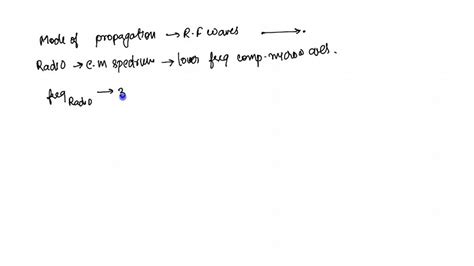 Mode of propagation → R.F waves ⟶.
Radio → E.M spectrum → lower freq comp. micro waves.
freq Radio → 3